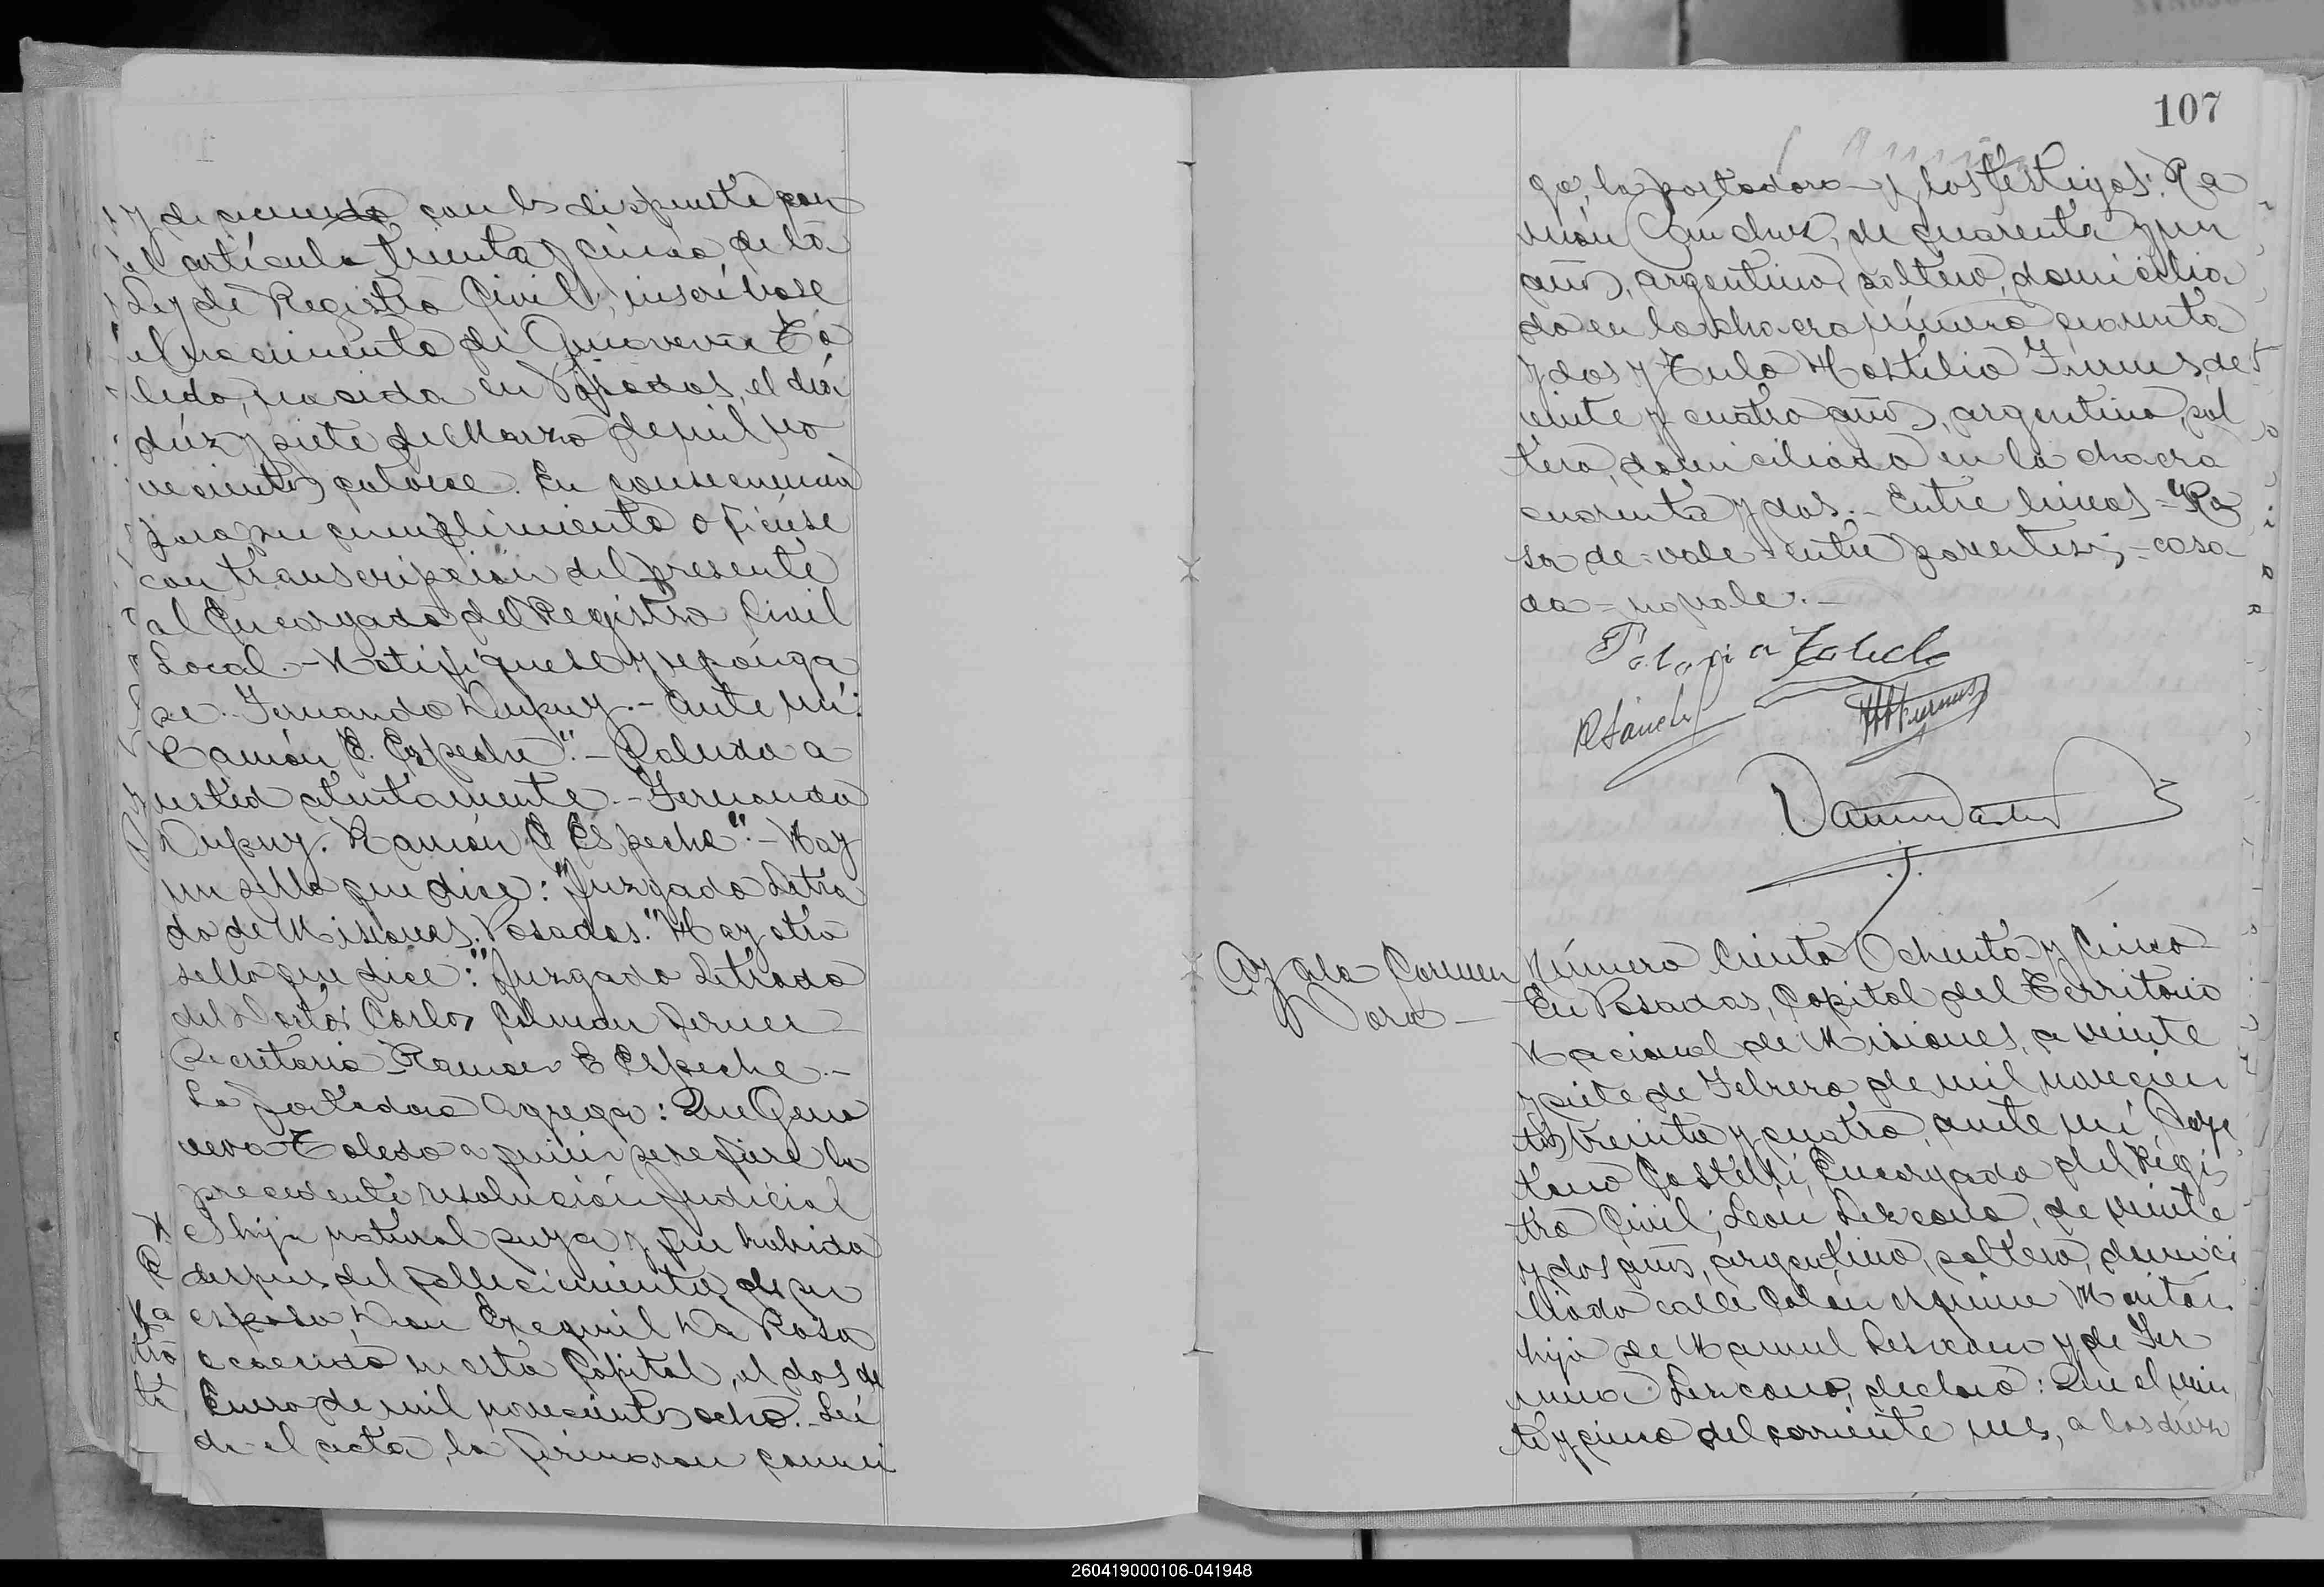 y de acuerdo con lo dispuesto por
el artículo treinta y cinco de la
Ley de Registro Civil, inscríbase
el nacimiento de Genoveva To
ledo, nacida en Posadas, el día
diez y siete de Marzo de mil no
vecientos catorce. En consecuencia
para su cumplimiento ofíciese
con transcripción del presente
al Encargado del Registro Civil
Local.- Notifíquese y repónga
se.- Fernando Dupuy.- Ante mí:
Ramón E. Espeche".- Saludo a
usted atentamente.- Fernando
Dupuy. Ramón E Espeche".- Hay
un sello que dice: "Juzgado Letra
do de Misiones. Posadas." Hay otro
sello que dice: "Juzgado Letrado
del Doctor Carlos
Secretaria Ramon E Espeche.-
La portadora agrega: Que Geno
veva Toledo a quien se refiere la
precedente resolución judicial
es hija natural suya y fue habida
despues del fallecimiento de su
esposo, Don Exequiel Da Rosa
ocurrido en esta Capital, el dos de
Enero de mil novecientos ocho.- Leí
da el acta, la firmaron conmi
107
go, la portadora y los testigos: Ra
món Sánchez, de cuarenta y un
años, argentino, soltero, domicilia
do en la chacra número cuarenta
y dos y Tulo Hostilio Furnus, de
veinte y cuatro años, argentino, sol
tero, domiciliado en la chacra
cuarenta y dos.- Entre lineas - "Ro
sa de - vale - entre parentesis - casa
da = no vale.-
Toledo
R Sánchez
HFurnus
Ayala Carmen
Dora -
Número Ciento Ochenta y Cinco
En Posadas, Capital del Territorio
Nacional de Misiones, a veinte
y siete de Febrero de mil novecien
tos treinta y cuatro, ante mí, Caye
tano Castelli, Encargado del Regis
tro Civil; León Lezcano, de veinte
y dos años, argentino, soltero, domici
liado calle Colón esquina
hijo de Manuel y de Fer
mina Lezcano, declaró: Que el vein
te y cinco del corriente mes, a las diez
260419000106-041948